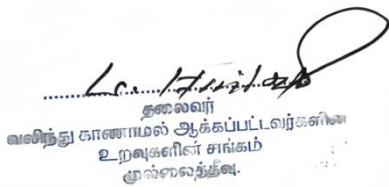 தலைவர்
வலிந்து காணாமல் ஆக்கப்பட்டவர்களின்
உறவுகளின் சங்கம்
முல்லைத்தீவு.